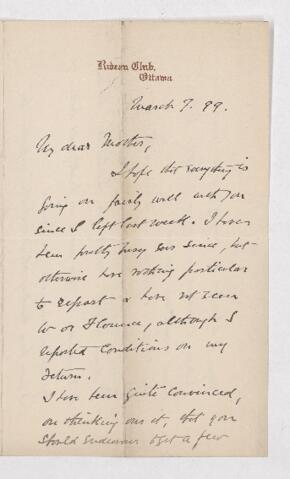 Rideau Club,
Ottawa
March 7. 99.
My dear Mother,
I hope that everything is
going on fairly well with you
since I left last week. I have
been pretty busy ever since, but
otherwise have nothing particular
to report & have not seen
W or Florence, although I
reported conditions on my
return.
I have been quite convinced,
on thinking over it, that you
should endeavour to get a few